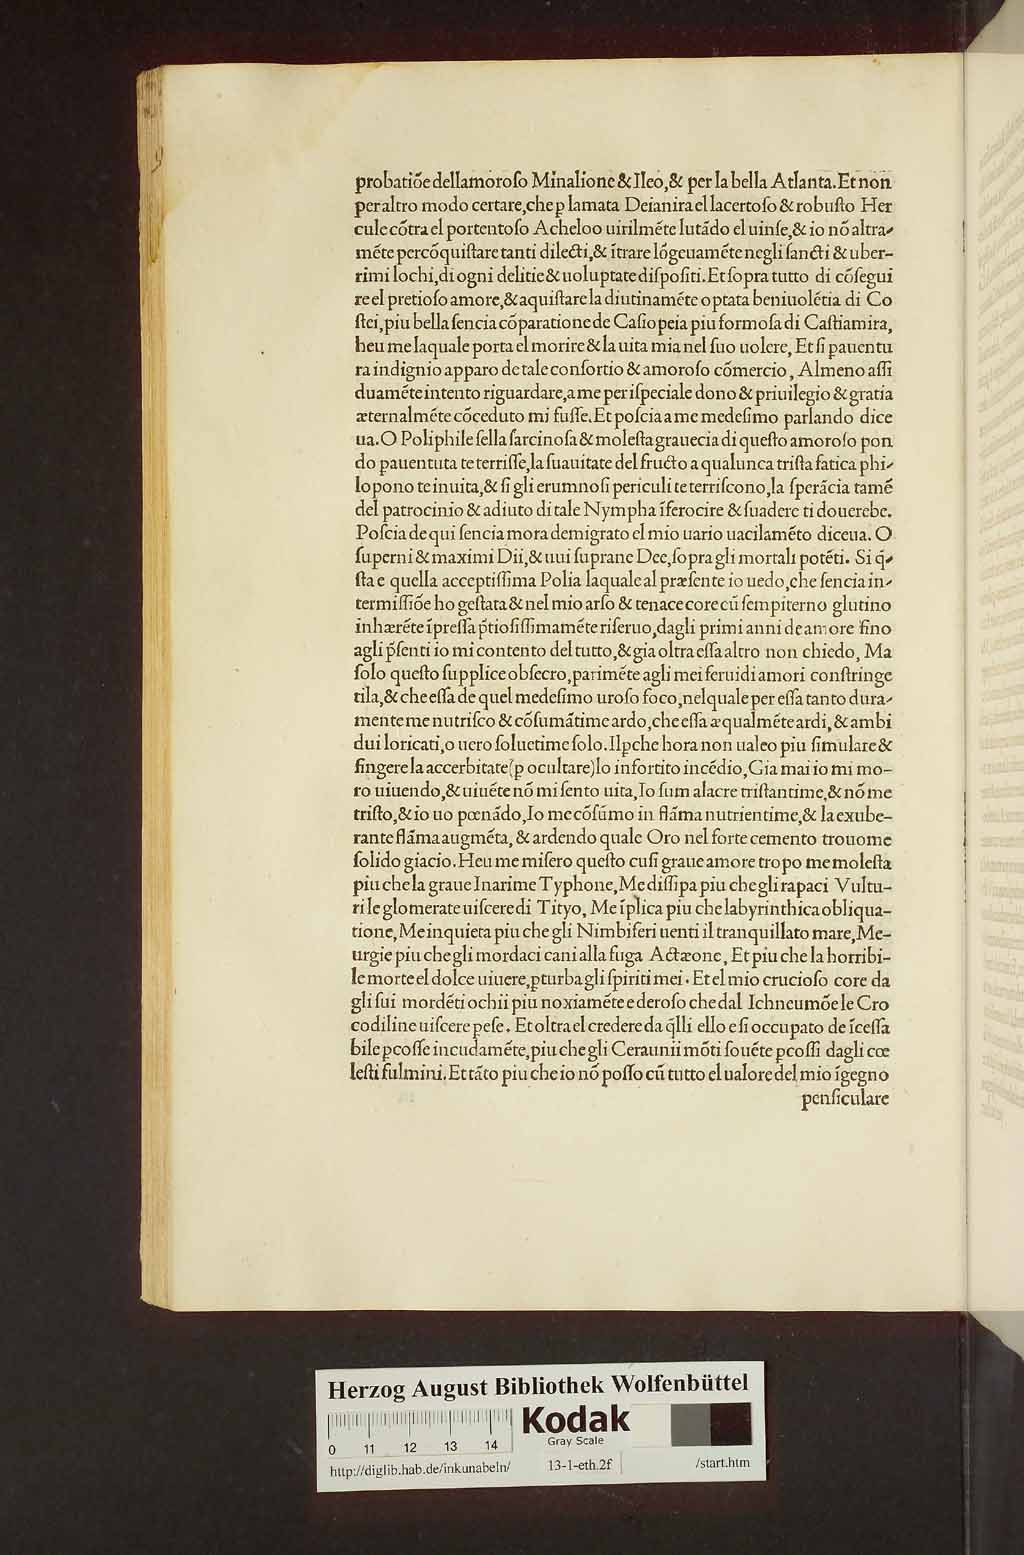 probatiõe dellamoroſo Minalione & Ileo, & per la bella Atlanta. Et non
per altro modo certare, che p̱ lamata Deianira el lacertoſo & robuſto Her
cule cõtra el portentoſo Acheloo uirilmẽte lutãdo el uinſe, & io nõ altra-
mẽte per cõquiſtare tanti dilecti, & ĩtrare lõgeuamẽte negli ſancti & uber-
rimi lochi, di ogni delitie & uoluptate diſpoſiti. Et ſopra tutto di cõſegui
re el pretioſo amore, & aquiſtare la diutinamẽte optata beniuolẽtia di Co
ſtei, piu bella ſencia cõparatione de Caſiopeia piu formoſa di Caſtiamira,
heu me laquale porta el morire & la uita mia nel ſuo uolere, Et ſi pauentu
ra indignio apparo de tale conſortio & amoroſo cõmercio, Almeno aſſi
duamẽte intento riguardare, a me per iſpeciale dono & priuilegio & gratia
æternalmẽte cõceduto mi fuſſe. Et poſcia a me medeſimo parlando dice
ua. O Poliphile ſella ſarcinoſa & moleſta grauecia di queſto amoroſo pon
do pauentuta te terriſſe, la ſuauitate del fructo a qualunca triſta fatica phi-
lopono te inuita, & ſi gli erumnoſi periculi te terriſcono, la ſperãcia tamẽ
del patrocinio & adiuto di tale Nympha ĩferocire & ſuadere ti douerebe.
Poſcia de qui ſencia mora demigrato el mio uario uacilamẽto diceua. O
ſuperni & maximi Dii, & uui ſuprane Dee, ſopra gli mortali potẽti. Si q̃-
ſta e quella acceptiſſima Polia laquale al præſente io uedo, che ſencia in-
termiſſiõe ho geſtata & nel mio arſo & tenace core cũ ſempiterno glutino
inhærẽte ĩpreſſa p̃tioſiſſimamẽte riſeruo, dagli primi anni de amore fino
agli p̃ſenti io mi contento del tutto, & gia oltra eſſa altro non chiedo, Ma
ſolo queſto ſupplice obſecro, parimẽte agli mei feruidi amori conſtringe
tila, & che eſſa de quel medeſimo uroſo foco, nel quale per eſſa tanto dura-
mente me nutriſco & cõſumãtime ardo, che eſſa æqualmẽte ardi, & ambi
dui loricati, o uero ſoluetime ſolo. Ilp̱che hora non ualeo piu ſimulare &
fingere la accerbitate (p̱ ocultare) lo infortito incẽdio, Gia mai io mi mo-
ro uiuendo, & uiuẽte nõ mi ſento uita, Io ſum alacre triſtantime, & nõ me
triſto, & io uo pœnãdo, Io me cõſũmo in flãma nutrientime, & la exube-
rante flãma augmẽta, & ardendo quale Oro nel forte cemento trouome
ſolido giacio. Heu me miſero queſto cuſi graue amore tropo me moleſta
piu che la graue Inarime Typhone, Me diſſipa piu che gli rapaci Vultu-
ri le glomerate uiſcere di Tityo, Me ĩplica piu che labyrinthica obliqua-
tione, Me inquieta piu che gli Nimbiferi uenti il tranquillato mare, Me-
urgie piu che gli mordaci cani alla fuga Actæone, Et piu che la horribi-
le morte el dolce uiuere, p̱turba gli ſpiriti mei. Et el mio crucioſo core da
gli ſui mordẽti ochii piu noxiamẽte e deroſo che dal Ichneumõe le Cro
codiline uiſcere peſe. Et oltra el credere da q̃lli ello e ſi occupato de ĩceſſa
bile p̱coſſe incudamẽte, piu che gli Ceraunii mõti ſouẽte p̱coſſi dagli cœ
leſti fulmini. Et tãto piu che io nõ poſſo cũ tutto el ualore del mio ĩgegno
penſiculare
Herzog August Bibliothek Wolfenbüttel
0 11 12 13 14
Kodak
Gray Scale
http://diglib.hab.de/inkunabeln/ 13-1-eth.2f /start.htm